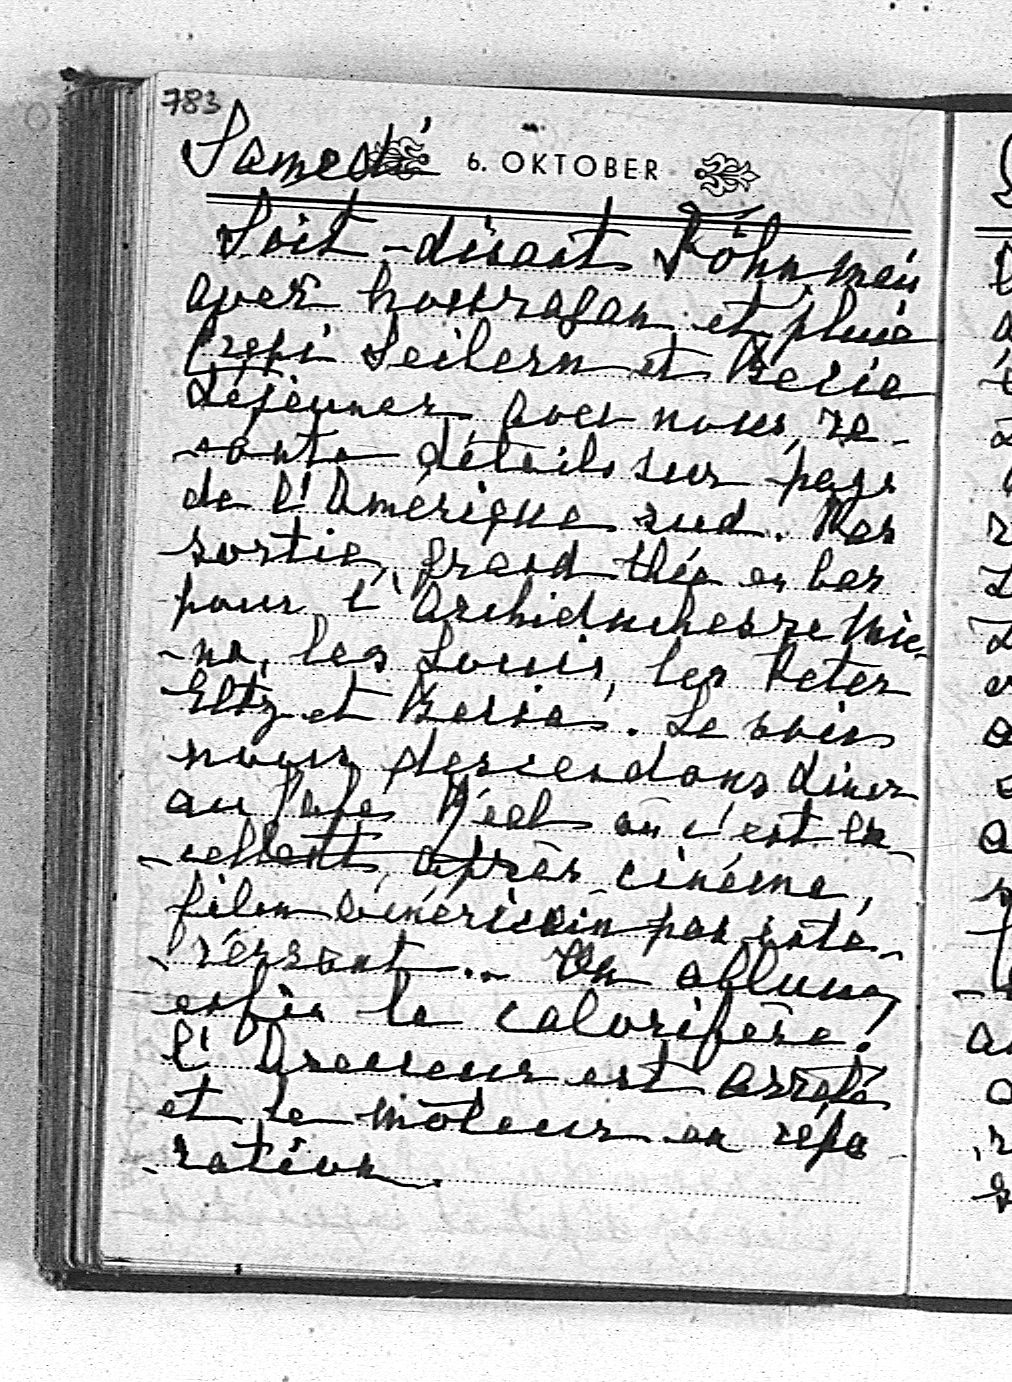 783
Samedi 6. OKTOBER
Soit-disait Föhn, mais
avec houragan et pluie
Crepi Seilern et Beria
déjeuner avec nous, ra-
-conte détails sur pays
de l'Amérique sud. Pas
sortie, grand thé en bas
pour l'Archiduchesse
-na, les Louis, les Peter
Eltz et Beria. Le soir
nous descendons diner
au Café où c'est ex-
-cellent, après cinéma,
film américain pas inté-
-réssant.. On allume
enfin le calorifère!
l'Ascenseur est arrêté
et le moteur en répa
-ration.